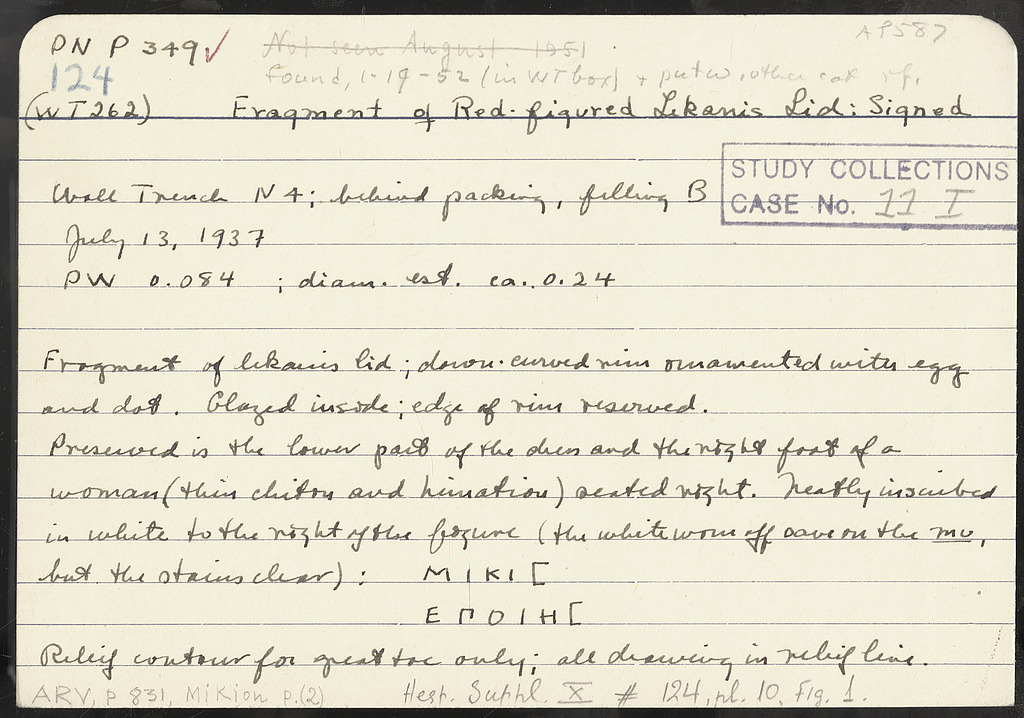 PN P 349✓ Not seen August 1951 AP587
124 Found, 1-19-52 (in WT box) + put w. other cat rf.
(WT262) Fragment of Red-figured Lekanis Lid: Signed
STUDY COLLECTIONS
CASE No. 11 I
Wall Trench N 4; behind packing, filling B
July 13, 1937
PW 0.084 ; diam. est. ca. 0.24
Fragment of lekanis lid; down-curved rim ornamented with egg
and dot. Glazed inside; edge of rim reserved.
Preserved is the lower part of the dress and the right foot of a
woman (thin chiton and himation) seated right. Neatly inscribed
in white to the right of the figure (the white worn off save on the mu,
but the stains clear): ΜΙΚΙ[
ΕΠΟΙΗ[
Relief contour for great toe only; all drawing in relief line.
ARV, p 831, Mikion p.(2) Hesp. Suppl. X # 124, pl. 10, Fig. 1.